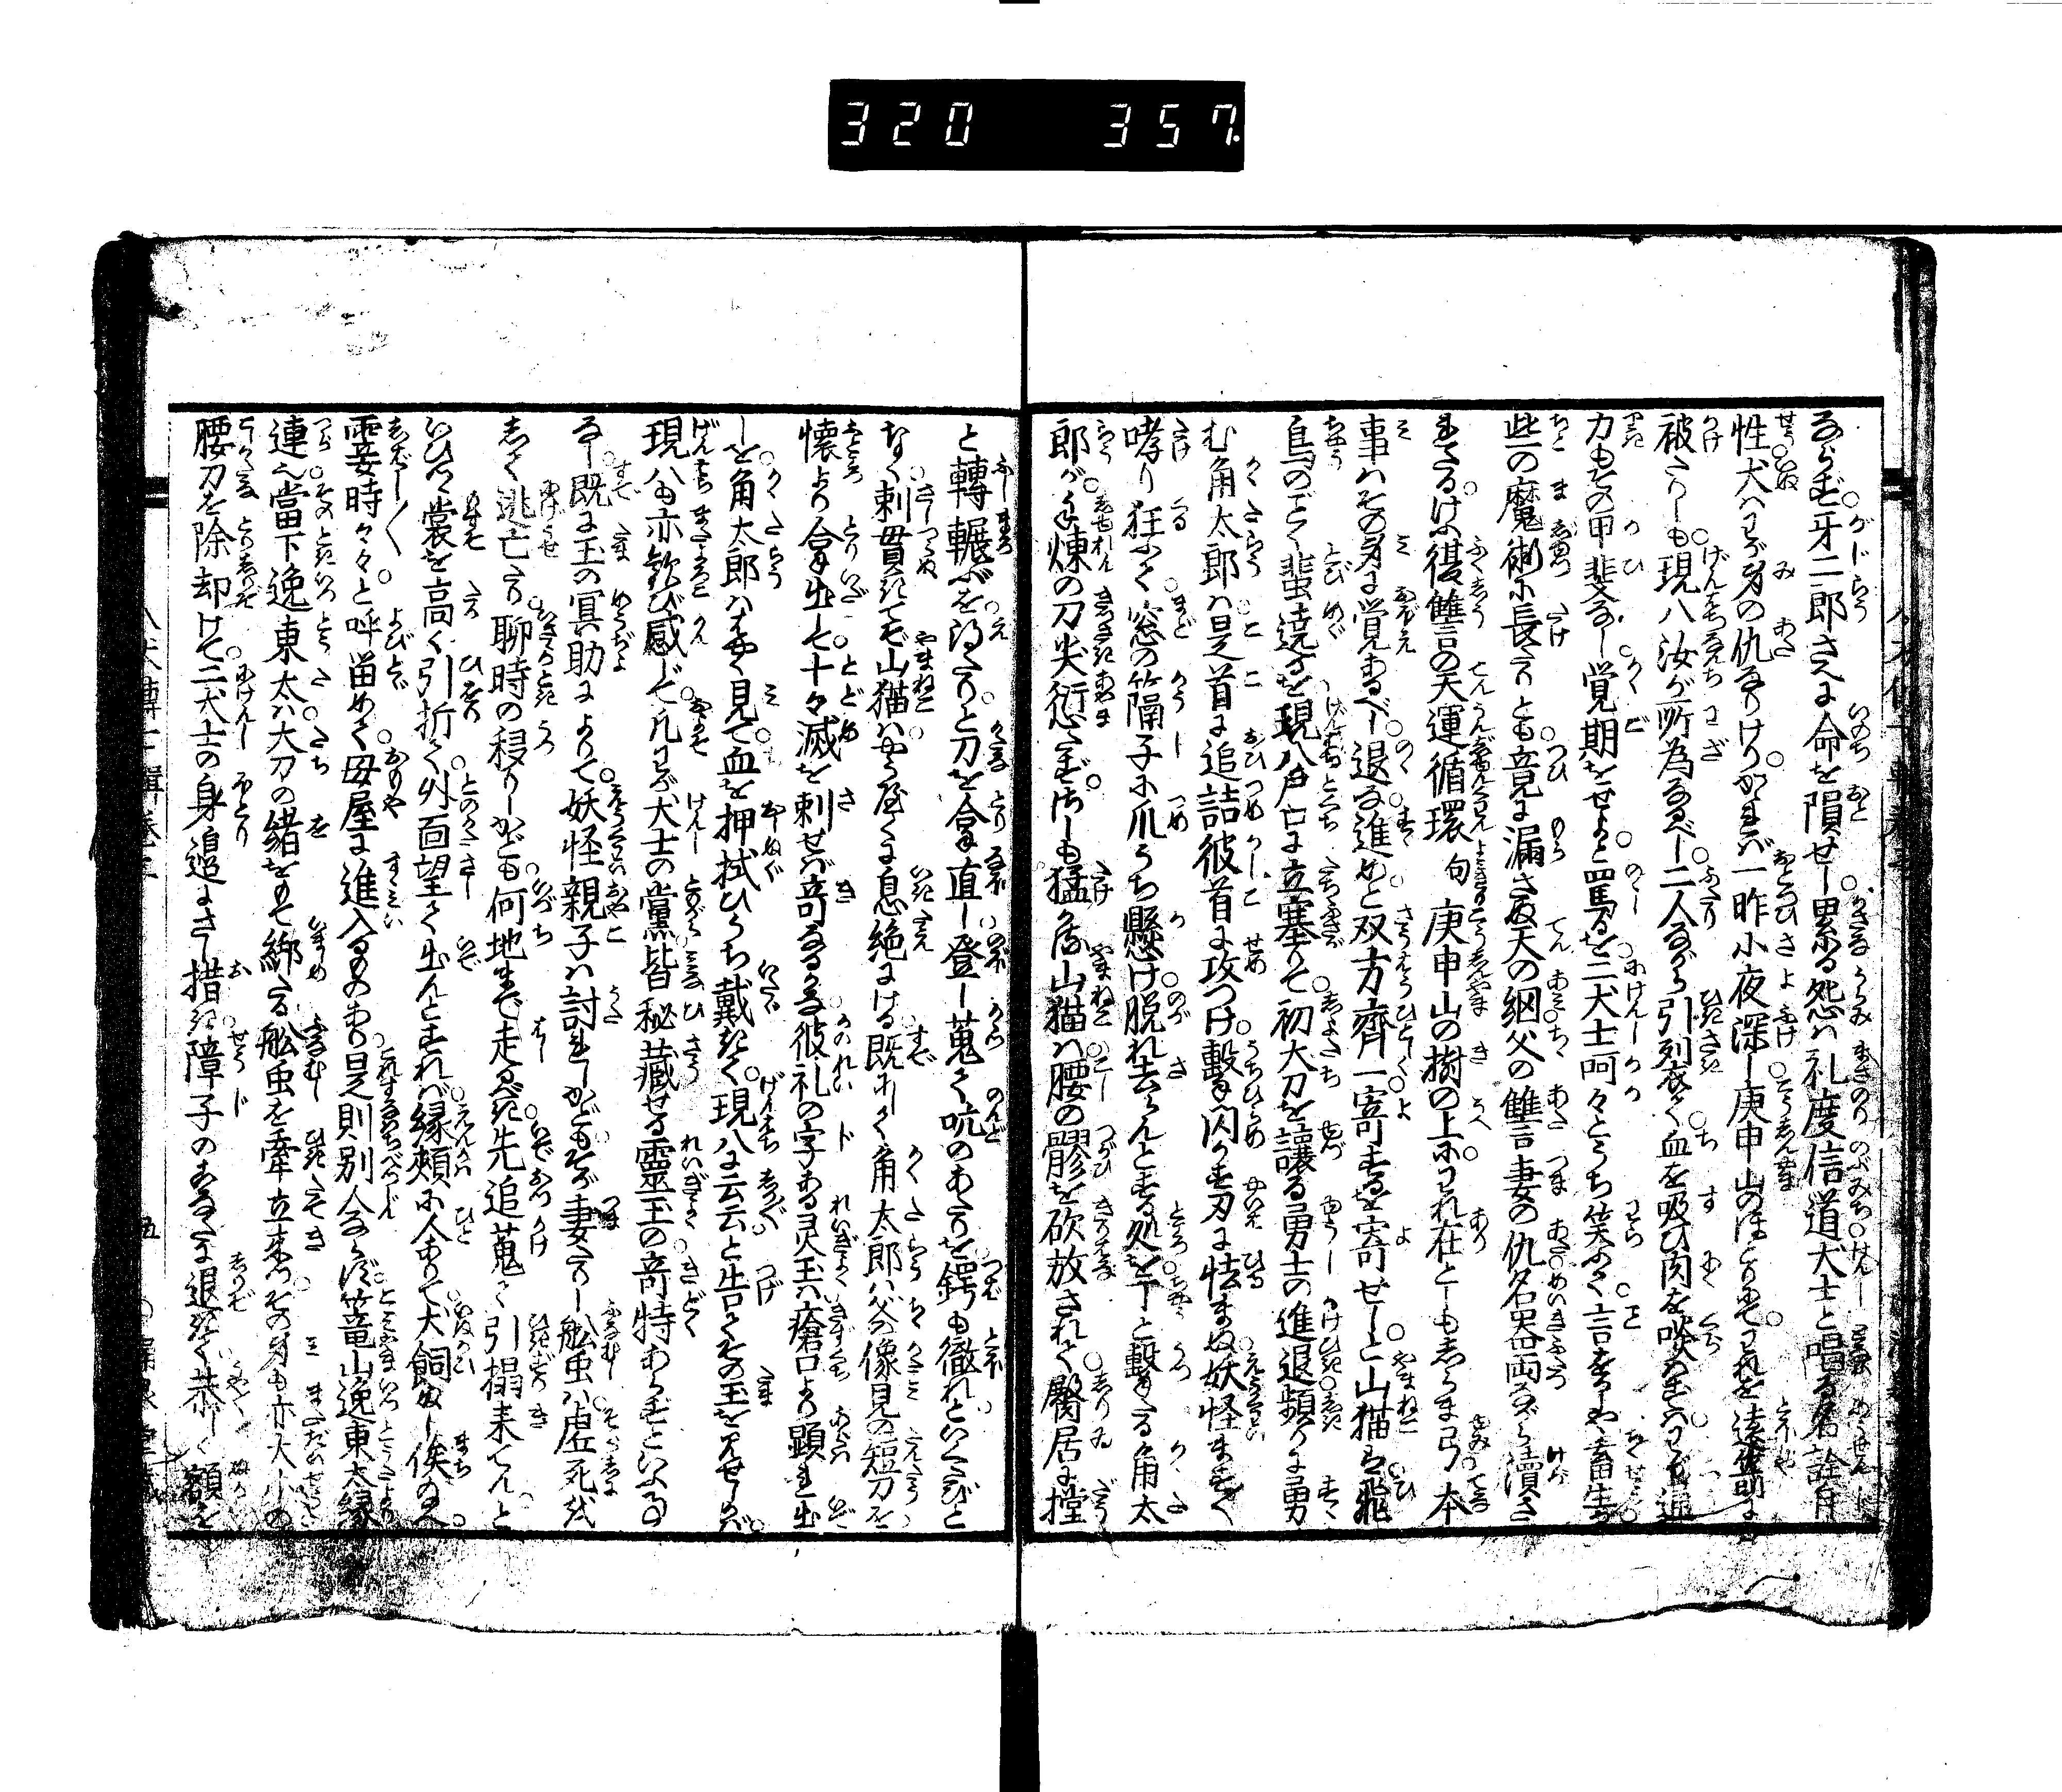 320 357
ならず。牙二郎さへに命を隕せし。累る怨は礼度信道。犬士と唱る名詮自
性。犬はわが身の仇なりけり。かゝれば一昨小夜深し。庚申山のほとりにて。われを
被たりしも。現八汝が所為なるべし。二人ながら引裂きて。血を吸ひ肉を啖
力もその甲斐なし。覚期をせよと罵るを。二犬士呵々とうち笑ひて。言をかしや畜生
些の魔術に長たりとも。竟に漏さぬ天の網。父の讐妻の仇。名器両ながら瀆さ
れたるけふ復讐の天運循環句庚申山の樹の上に。われ在としもしらま弓。本
事はその身に覚あるべし。退な進めと双方齊一。寄するを寄せじと山猫は。飛
鳥のごとく蜚遶るを。現八戸口に立塞りて。初大刀を譲る勇士の進退。頻りに勇
む角太郎は。是首に追詰彼首に攻つけ。撃閃かす刃に怯まぬ妖怪ますます
哮り狂ふて。窓の篩子に爪うち懸け。脱れ去らんとする処を。丁と撃たる角太
郎が。手煉の刀尖愆ず。さしも猛き山猫は。腰の髎を砍放されて。臀居に撲
と轉輾ぶを。得たりと刀を拿直し。登し蒐て吭のあたりを。鍔も徹れといくたびと
なく。刺貫きてぞ山猫は。やうやくに息絶にける。既にして角太郎は。父の像見の短刀を。
懐より拿出して。十々滅を刺せば奇なるかな。彼礼の字ある霊玉は。瘡口より顕れ出
しを。角太郎ははやく見て。血を押拭ひうち戴きて。現八に云云と。告てその玉を見せしかば。
現八も亦歓び感じて。凡わが犬士の黨。皆秘藏せる霊玉の。奇特あらずといふ事
なし。既に玉の冥助によりて。妖怪親子は討れしかども。そが妻たりし舩虫は。虚死を
して逃亡たり。聊時の移りしかども。何地まで走るべき。先追蒐て引搨来てんと。
いひつゝ裳を高く引折て。外面望て出んとすれば。縁頬に人ありて。犬飼ぬし俟給へ。
霎時々々と呼留めて。母屋に進入るものあり。是則別人ならず。篭山逸東太縁
連也。當下逸東太は。大刀の緒をもて綁たる。舩虫を牽立来つ。その身も亦大小の
腰刀を除却けて。二犬士の身邉にさし措き。障子のあなたに退きて。恭しく額を